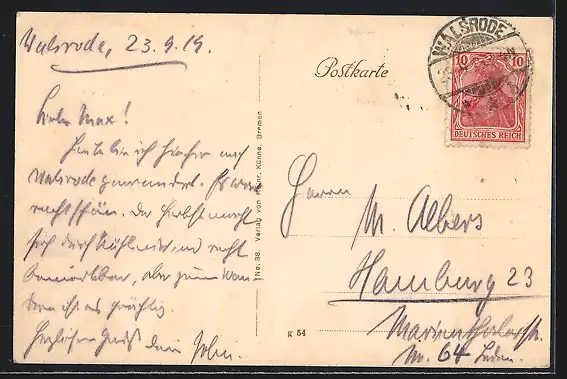 Walsrode, 23.9.19.
Lieber Max!
Heute bin ich hierher nach
Walsrode gewandert. Es war
recht schön. Der Herbst macht
sich durch Kühle und recht
bemerkbar, aber zum Wan
dern ist es prächtig.
Herzlichen Gruß dein
No. 38. Verlag von Heinr. Künne, Bremen
Postkarte
WALSRODE
10 10
DEUTSCHES REICH
Herrn
M. Albers
Hamburg 23
No. 64
K 54